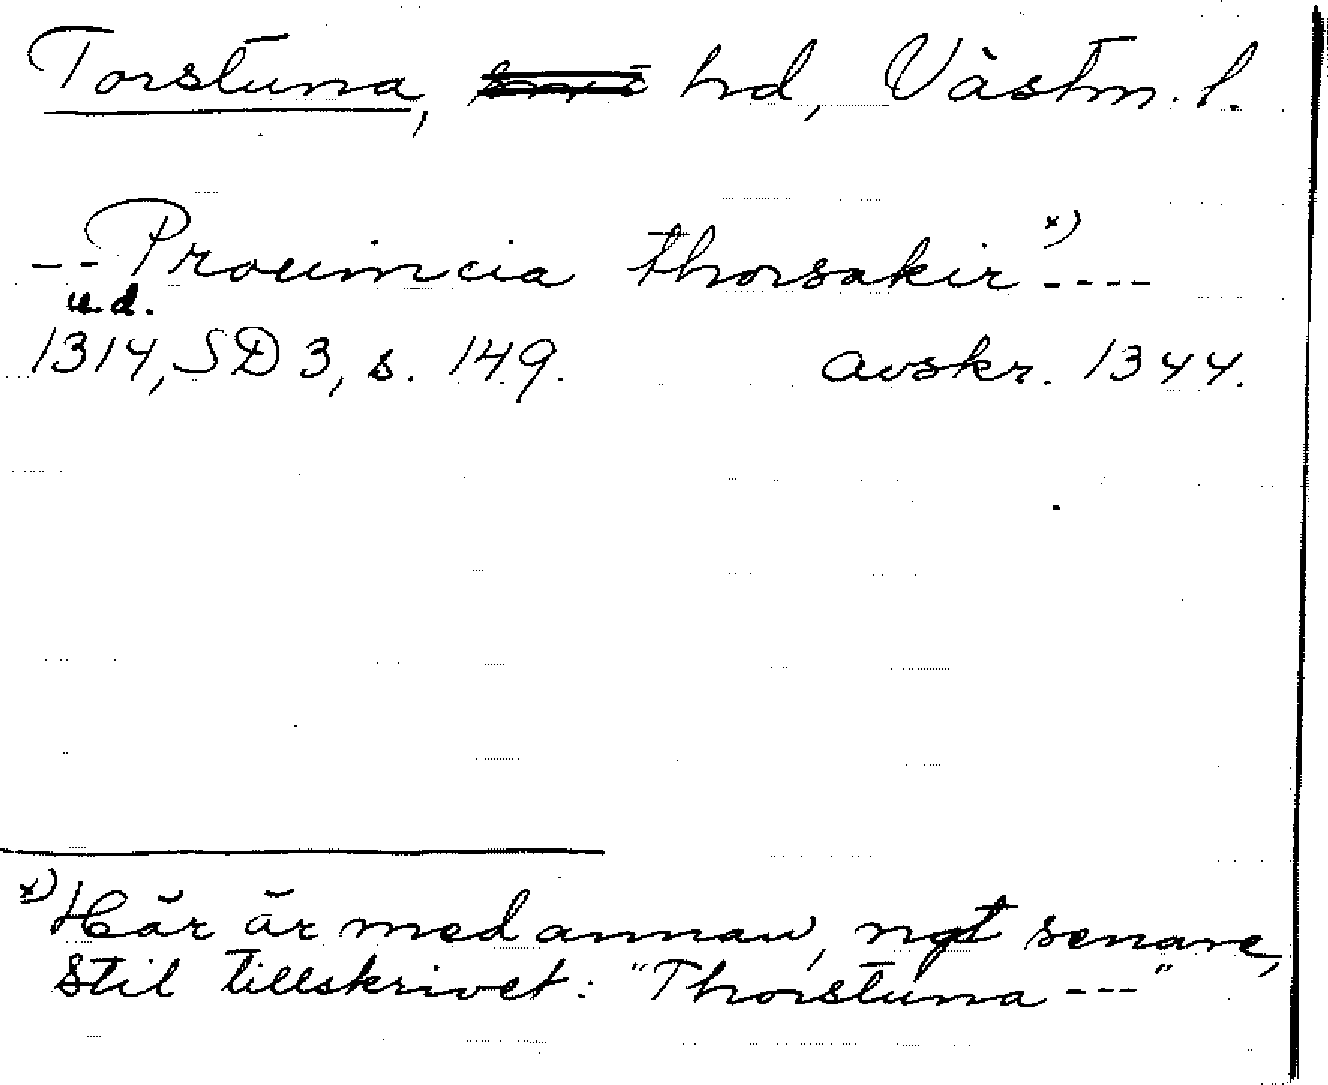 Torstuna, hd, Västm. l.
-- Prouincia thorsakir x) ----
u.d.
1314, SD 3, s. 149. avskr. 1344.
x) Här är med annan, ngt senare,
stil tillskrivet: "Thorstuna ---"